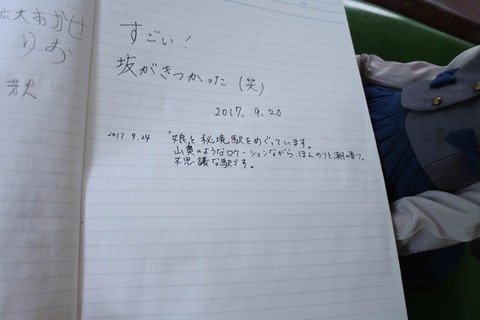 広大
りお
すごい!
坂がきつかった(笑)
2017. 9. 20
2017. 9. 24 「娘と秘境駅をめぐっています。
山奥のようなロケーションながら、ほんのりと潮の香り。
不思議な駅です。